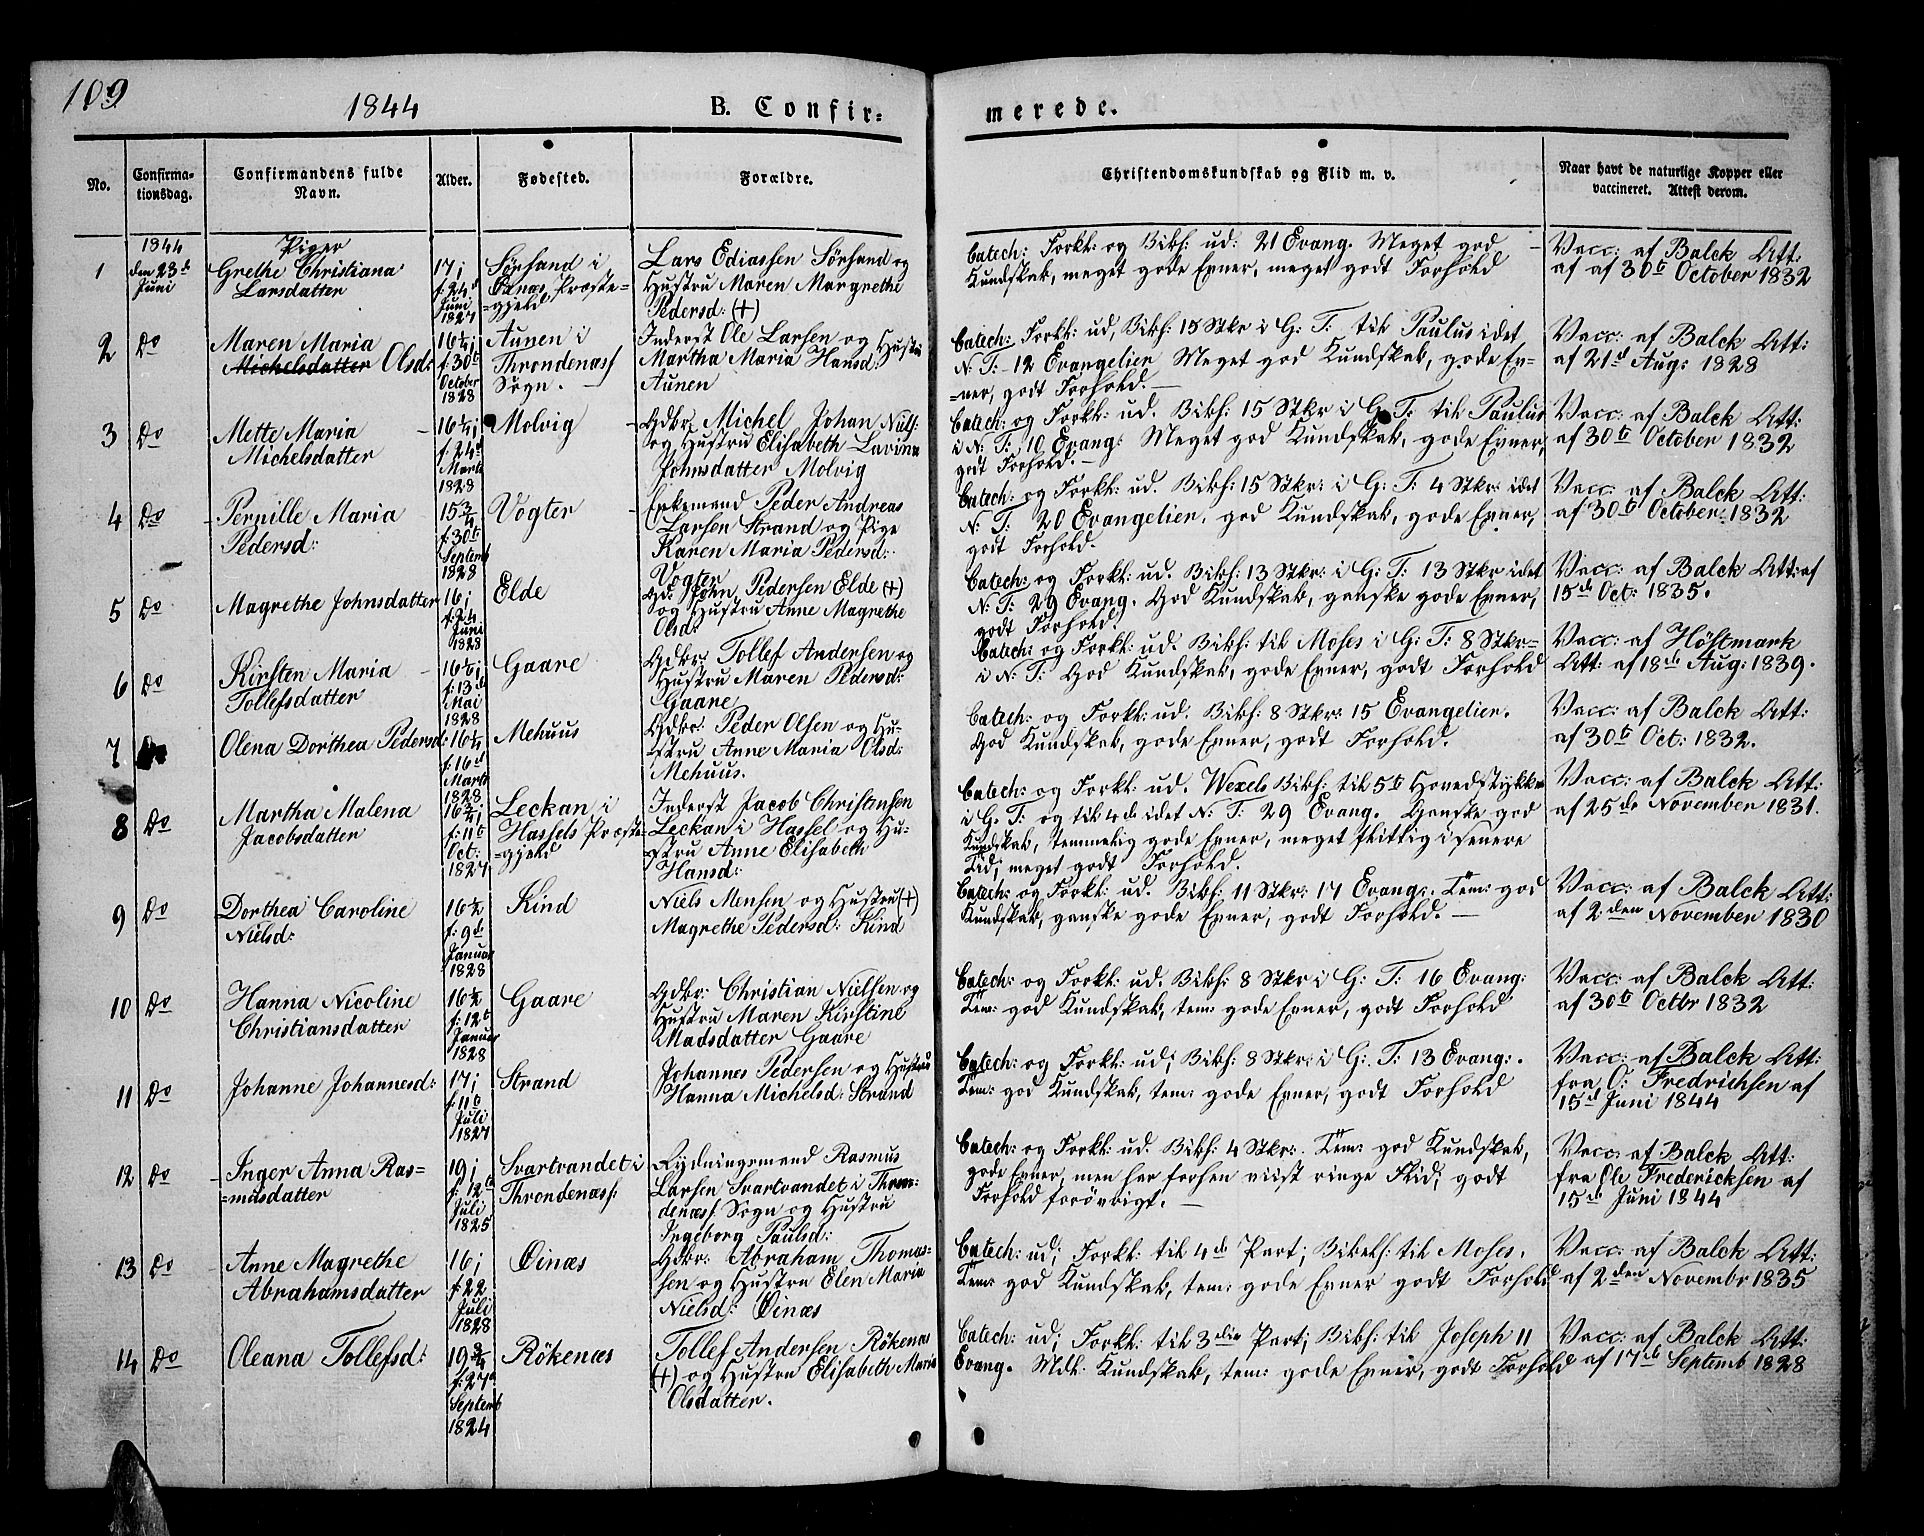 109
1844
B. Confir=
merede.
No.
Confirma-
tionsdag.
Confirmandens fulde
Navn.
Alder.
Fødested.
Forældre.
Christendomskundskab og Flid m. v.
Naar havt de naturlige Kopper eller
vaccineret. Attest derom.
1844
Piger
1
den 23d
Juni
Grethe Christiana
Larsdatter
17;
f: 24d
Juni
1827
Sørsand i
Sanas Præste=
=gjeld
Lars Ediassen Sørsand og
Hustru Maren Margrethe
Pedersd: (+)
Catech: Forkl: og Bibh: ud: 21 Evang. Meget god
Kundskab, meget gode Evner, meget godt Forhold
Vacc: af Balck Att:
af af 30te October 1832
2
Do
Maren Maria
Michelsdatter Olsd:
16½;
f: 30te
October
1828
Aunen i
Throndenæss
Sogn.
Inderst Ole Larsen og Hustru
Martha Maria Hansd:
Aunen
Catech: Forkl: ud, Bibh: 15 Stkr i G: T: til Paulus i det
N: T: 12 Evangelier Meget god Kundskab, gode Ev=
=ner, godt Forhold.
Vacc: af Balck Att:
af 21d Aug: 1828
3
Do
Mette Maria
Michelsdatter
16¼;
f: 24d
Marts
1828
Molvig
Gdbr: Michel Johan Niels:
og Hustru Elisabeth Lavina
Johnsdatter Molvig
Catech: og Forkl: ud. Bibh: 15 Stkr i G: T: til Paulus
i N: T: 10 Evang: Meget god Kundskab, gode Evner,
godt Forhold.
Vacc: af Balck Att:
af 30te October 1832
4
Do
Pernille Maria
Pedersd:
15¾
f: 30te
Septemb
1828
Vogter
Enkemand Peder Andreas
Larsen Strand og Pige
Karen Maria Pedersd:
Vogter
Catech: og Forkl: ud. Bibh: 15 Stkr: i G: T: 4 Stkr: i det
N: T: 20 Evangelier. god Kundskab, gode Evner,
godt Forhold.
Vacc: af Balck Att:
af 30te October 1832
5
Do
Magrethe Johnsdatter
16;
f: 24
Juni
1828
Elde
Gd: John Pedersen Elde (+)
og Hustru Anne Magrethe
Olsd:
Catech: og Forkl: ud. Bibh: 13 Stkr: i G: T: 13 Stkr i det
N: T: 29 Evang. God Kundskab, ganske gode Evner,
godt Forhold.
Vacc: af Balck Att: af
15de Oct: 1835.
6
Do
Kirsten Maria
Tollefsdatter
f: 13d
Mai
1828
Gaare
Gdbr: Tollef Andersen og
Hustru Maren Pedersd:
Gaare
Catech: og Forkl: ud. Bibh: til Moses i G: T: 8 Stkr=
i N: T: God Kundskab, gode Evner, godt Forhold
Vacc: af Höstmark
Att: af 18de Aug: 1839.
7
Olena Dorthea Pedersd:
16¼
f: 16d
Marts
1828
Mehuus
Gdbr: Peder Olsen og Hu-
stru Anne Maria Olsd:
Mehuus.
Catech: og Forkl: ud. Bibh: 8 Stkr: 15 Evangelier.
God Kundskab, gode Evner, godt Forhold.
Vacc: af Balck Att:
af 30te Oct: 1832.
8
Do
Martha Malena
Jacobsdatter
16¾;
f: 11te
Oct:
1827
Leckan i
Hassels Præste=
=gjeld
Inderst Jacob Christensen
Leckan i Hassel og Hu-
stru Anne Elisabeth
Hansd:
Catech: og Forkl: ud. Wexels Bibh: til 5te Hovedstykke
i G: T: og til 4de i det N: T: 29 Evang. Ganske god
Kundskab, temmelig gode Evner, meget flittig i senere
Tid; meget godt Forhold.
Vacc: af Balck Att:
af 25de November 1831.
9
Do
Dorthea Caroline
Nielsd:
16½
f: 9de
Januar
1828
Kind
Niels Mensen og Hustru (+)
Magrethe Pedersd: Kind
Catech: og Forkl: ud. Bibh: 11 Stkr: 17 Evang:. Tem: god
Kundskab, ganske gode Evner, godt Forhold.
Vacc: af Balck Att:
af 2den November 1830
10
Do
Hanna Nicoline
Christiansdatter
16½
f: 12te
Januar
1828
Gaare
Gdbr: Christian Nielsen og
Hustru Maren Kirstine
Madsdatter Gaare
Catech: og Forkl: ud. Bibh: 8 Stkr i G: T: 16 Evang:
Tem: god Kundskab, tem: gode Evner, godt Forhold
Vacc: af Balck Att:
af 30te Octbr 1832
11
Do
Johanne Johannesd:
17;
f: 11te
Juli
1827
Strand
Johannes Pedersen og Hustru
Hanna Michelsd: Strand
Catech: og Forkl: ud; Bibh: 8 Stkr: i G: T: 13 Evang:.
Tem: god Kundskab, tem: gode Evner, godt Forhold
Vacc: af Balck Att:
fra O: Fredrichsen af
15d Juni 1844
12
Do
Inger Anna Ras=
=musdatter
19;
f: 12te
Juli
1825
Svartvandet i
Throndenæss:
Rydningsmand Rasmus
Larsen Svartvandet i Thron-
denæss Sogn og Hustru
Ingeborg Paulsd:
Catech: og Forkl: ud. Bibh: 4 Stkr:. Tem: god Kundskab,
gode Evner, men har forhen viist ringe Flid; godt
Forhold forövrigt.
Vacc: af Balck Att:
fra Ole Fredericksen af
15de Juni 1844
13
Do
Anne Magrethe
Abrahamsdatter
16;
f: 22
Juli
1828
Øinæs
Gdbr: Abraham Thomas-
sen og Hustru Elen Maria
Nielsd: Øinæs
Catech: ud; Forkl: til 4de Part; Bibelh: til Moses.
Tem: god Kundskab, tem: gode Evner godt Forhold
Vacc: af Balck Att:
af 2den Novembr 1835
14
Do
Oleana Tollefsd:
19¾
f: 27d
Septemb
1824
Rökenæs
Tollef Andersen Rökenæs
(+) og Hustru Elisabeth Maria
Olsdatter.
Catech: ud; Forkl: til 3die Part; Bibh: til Joseph 11
Evang. Mdl: Kundskab, tem: gode Evner, godt Forhold
Vacc: af Balck Att:
af 17de Septemb 1828